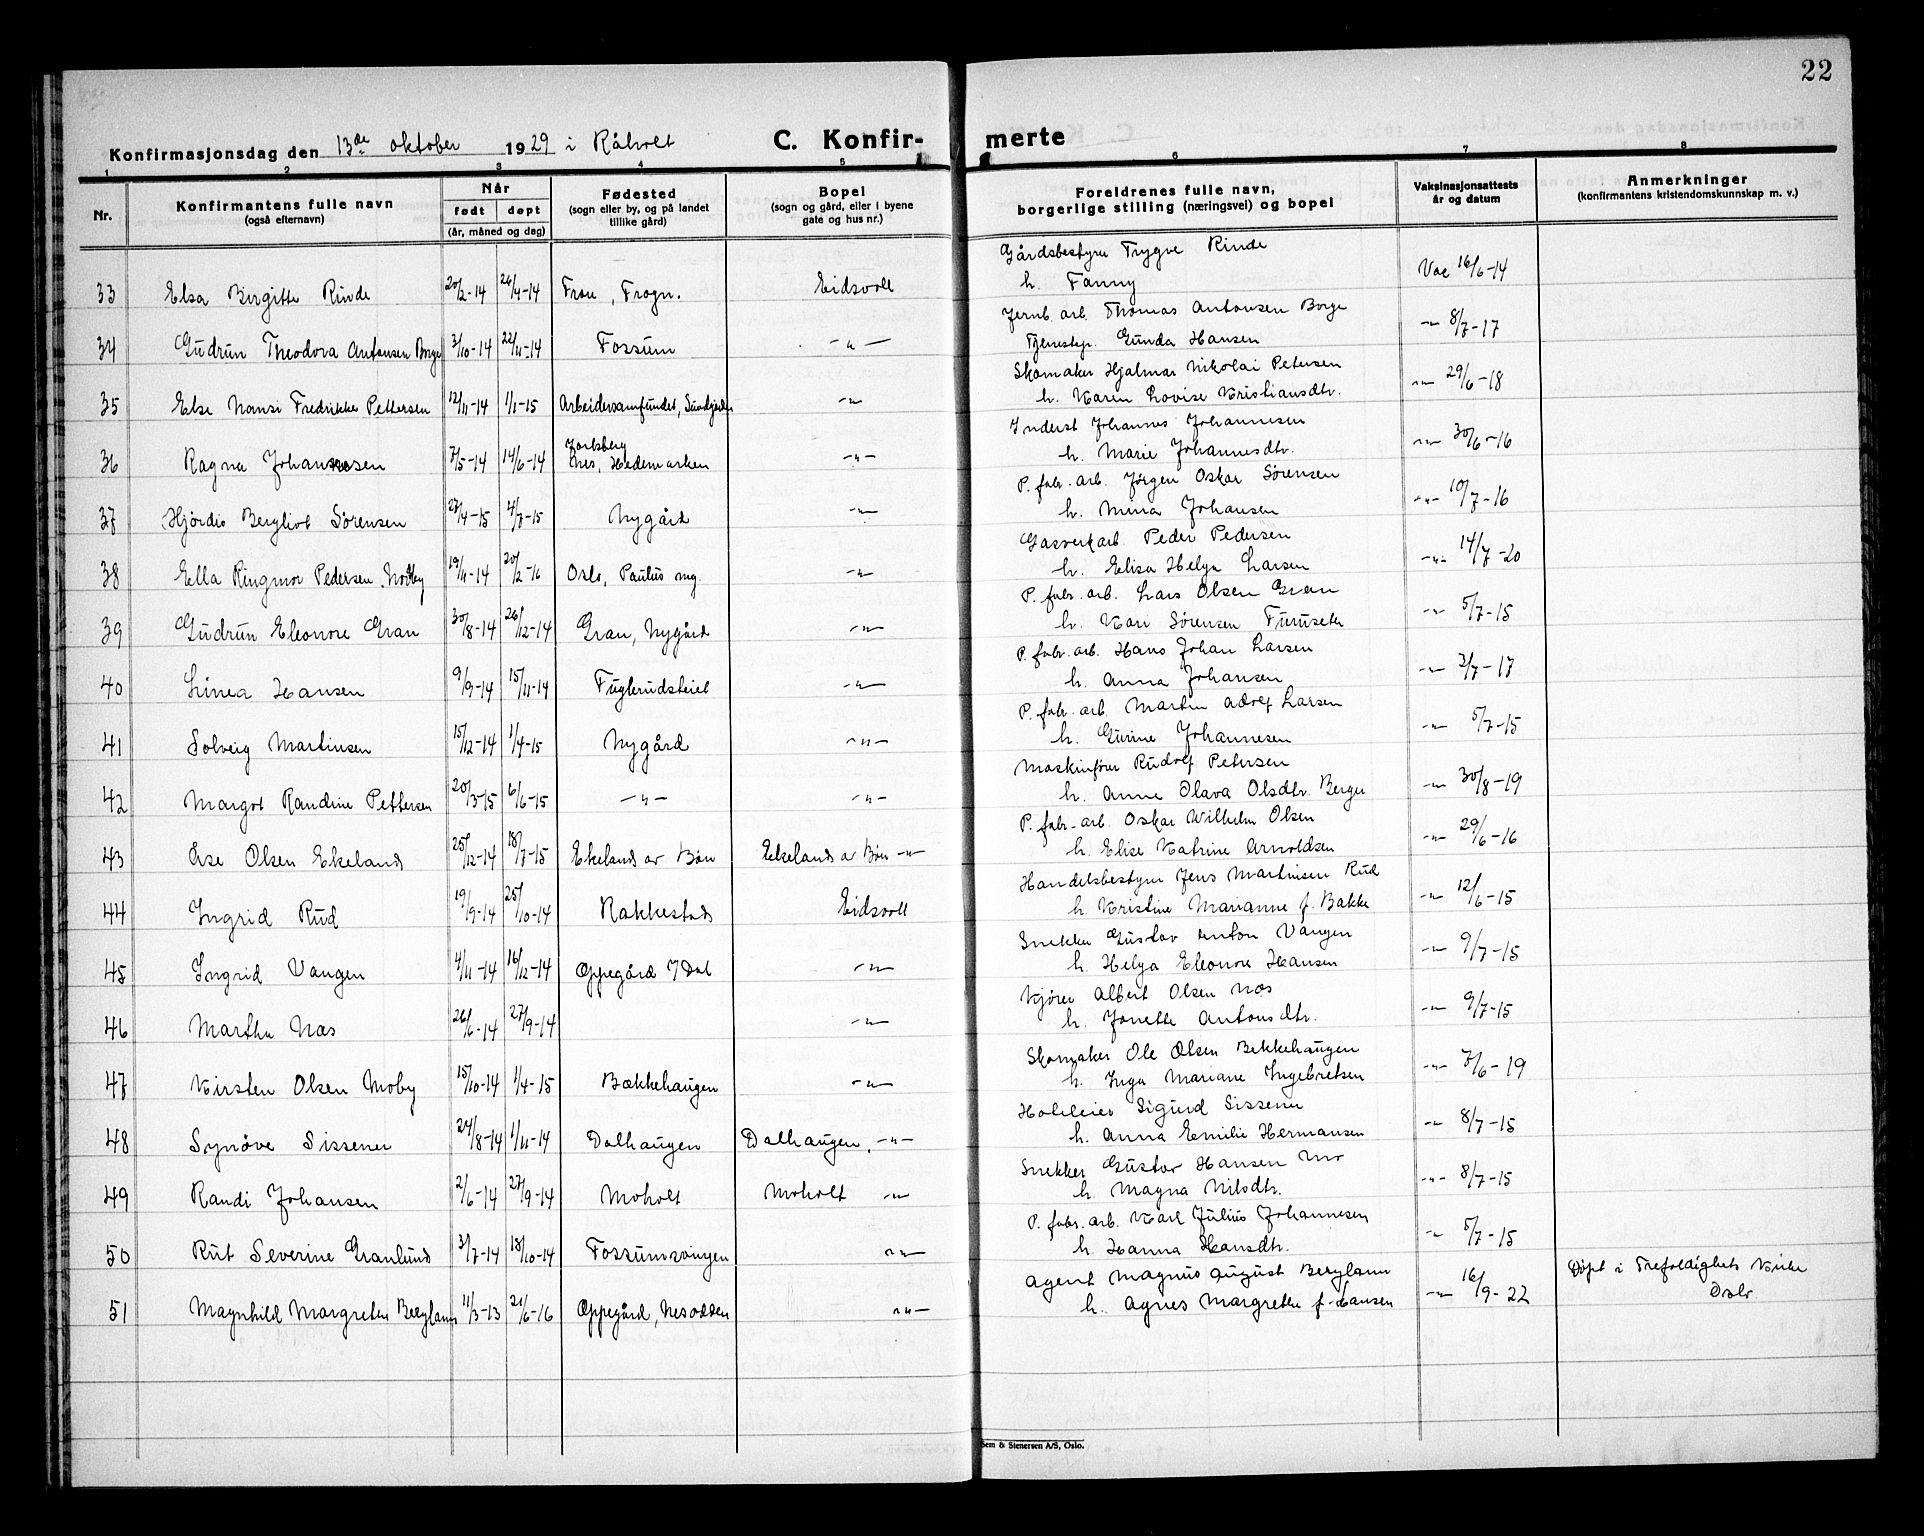 22
Konfirmasjonsdag den 13de oktober 1929 i Råholt C. Konfir- merte
1 2 3 4 5 6 7 8
Nr. Konfirmantens fulle navn (også efternavn) Når født døpt (år, måned og dag) Fødested (sogn eller by, og på landet tillike gård) Bopel (sogn og gård, eller i byene gate og hus nr.) Foreldrenes fulle navn, borgerlige stilling (næringsvei) og bopel Vaksinasjonsattests år og datum Anmerkninger (konfirmantens kristendomskunnskap m. v.)
Gårdsbestyrer Trygve Rinde
33 Elsa Birgitte Rinde 20/2-14 26/4-14 Frou, Frogn. Eidsvoll h. Fanny Vac 16/6-14
Jernb. arb. Thomas Antonsen Borge
34 Gudrun Theodora Antonsen Borge 3/10-14 22/11-14 Fossum -"- Tjenestep. Gunda Hansen -"- 8/7-17
Skomaker Hjalmar Nikolai Petersen
35 Else Nansi Fredrikke Pettersen 12/11-14 1/1-15 Arbeidersamfundet, -"- h. Karen Lovise Kristiansdtr. -"- 29/6-18
Jarlsberg Inderst Johannes Johannesen
36 Ragna Johannesen 7/5-14 14/6-14 Nes, Hedemarken -"- h. Marie Johannesdtr. -"- 30/6-16
P. fabr. arb. Jørgen Oskar Sørensen
37 Hjørdis Bergliot Sørensen 27/4-15 4/7-15 Nygård -"- h. Mina Johansen -"- 10/7-16
Gasverkarb. Peder Pedersen
38 Ella Ringmor Pedersen Norby 19/11-14 20/2-16 Oslo, Paulus mg. -"- h. Elisa Helga Larsen -"- 14/7-20
P. fabr. arb. Lars Olsen Gran
39 Gudrun Eleonore Gran 30/8-14 26/12-14 Gran, Nygård -"- h. Kari Sørensen Furuseth -"- 5/7-15
P. fabr. arb. Hans Johan Larsen
40 Linea Hansen 9/9-14 15/11-14 Fuglerudsteiet -"- h. Anna Johansen -"- 2/7-17
P. fabr. arb. Martin Adolf Larsen
41 Solveig Martinsen 15/12-14 1/4-15 Nygård -"- h. Gurine Johannesen -"- 5/7-15
Maskinfører Rudolf Petersen
42 Margot Randine Pettersen 20/3-15 6/6-15 -"- -"- h. Anne Olava Olsdtr. Berger -"- 30/8-19
P. fabr. arb. Oskar Wilhelm Olsen
43 Åse Olsen Ekeland 25/12-14 18/7-15 Ekeland av Bøn Ekeland av Bøn -"- h. Elise Katrine Arnoldsen -"- 29/6-16
Handelsbestyrer Jens Martinisen Rud
44 Ingrid Rud 19/9-14 25/10-14 Rakkestad Eidsvoll h. Kristine Marianne f. Bakke -"- 12/6-15
Snekker Gustav Anton Vangen
45 Ingrid Vangen 4/11-14 16/12-14 Oppegård / Dal -"- h. Helga Eleonore Hansen -"- 9/7-15
Kjører Albert Olsen Næs
46 Martha Næs 26/6-14 27/9-14 -"- h. Jonette Antonsdtr. -"- 9/7-15
Skomaker Ole Olsen Bekkehaugen
47 Kirsten Olsen Moby 15/10-14 1/4-15 Bækkehaugen -"- h. Inga Mariane Ingebretsen -"- 7/6-19
Holeleier Sigurd Sissener
48 Synøve Sissener 24/8-14 1/11-14 Dalhaugen Dalhaugen, -"- h. Anna Emilie Hermansen -"- 8/7-15
Snekker Gustav Hansen Mo
49 Randi Johansen 2/6-14 27/9-14 Moholt Moholt -"- h. Magna Nilsdtr. -"- 8/7-15
P. fabr. arb. Karl Julius Johannesen
50 Rut Severine Granlund 3/7-14 18/10-14 Fossumsvingen -"- h. Hanna Hansdtr. -"- 5/7-15
Agent Magnus August Bergland Døpt i Trefoldighets Kirke
51 Magnhild Margrethe Bergland 11/3-13 21/6-16 Oppegård, Nesodden -"- h. Agnes Margrethe f. Hansen -"- 16/9-22 Oslo
Sem & Stenersen A/S, Oslo.